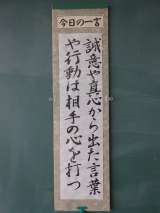 今日の一言
誠意や真心から出た言葉
や行動は相手の心を打つ